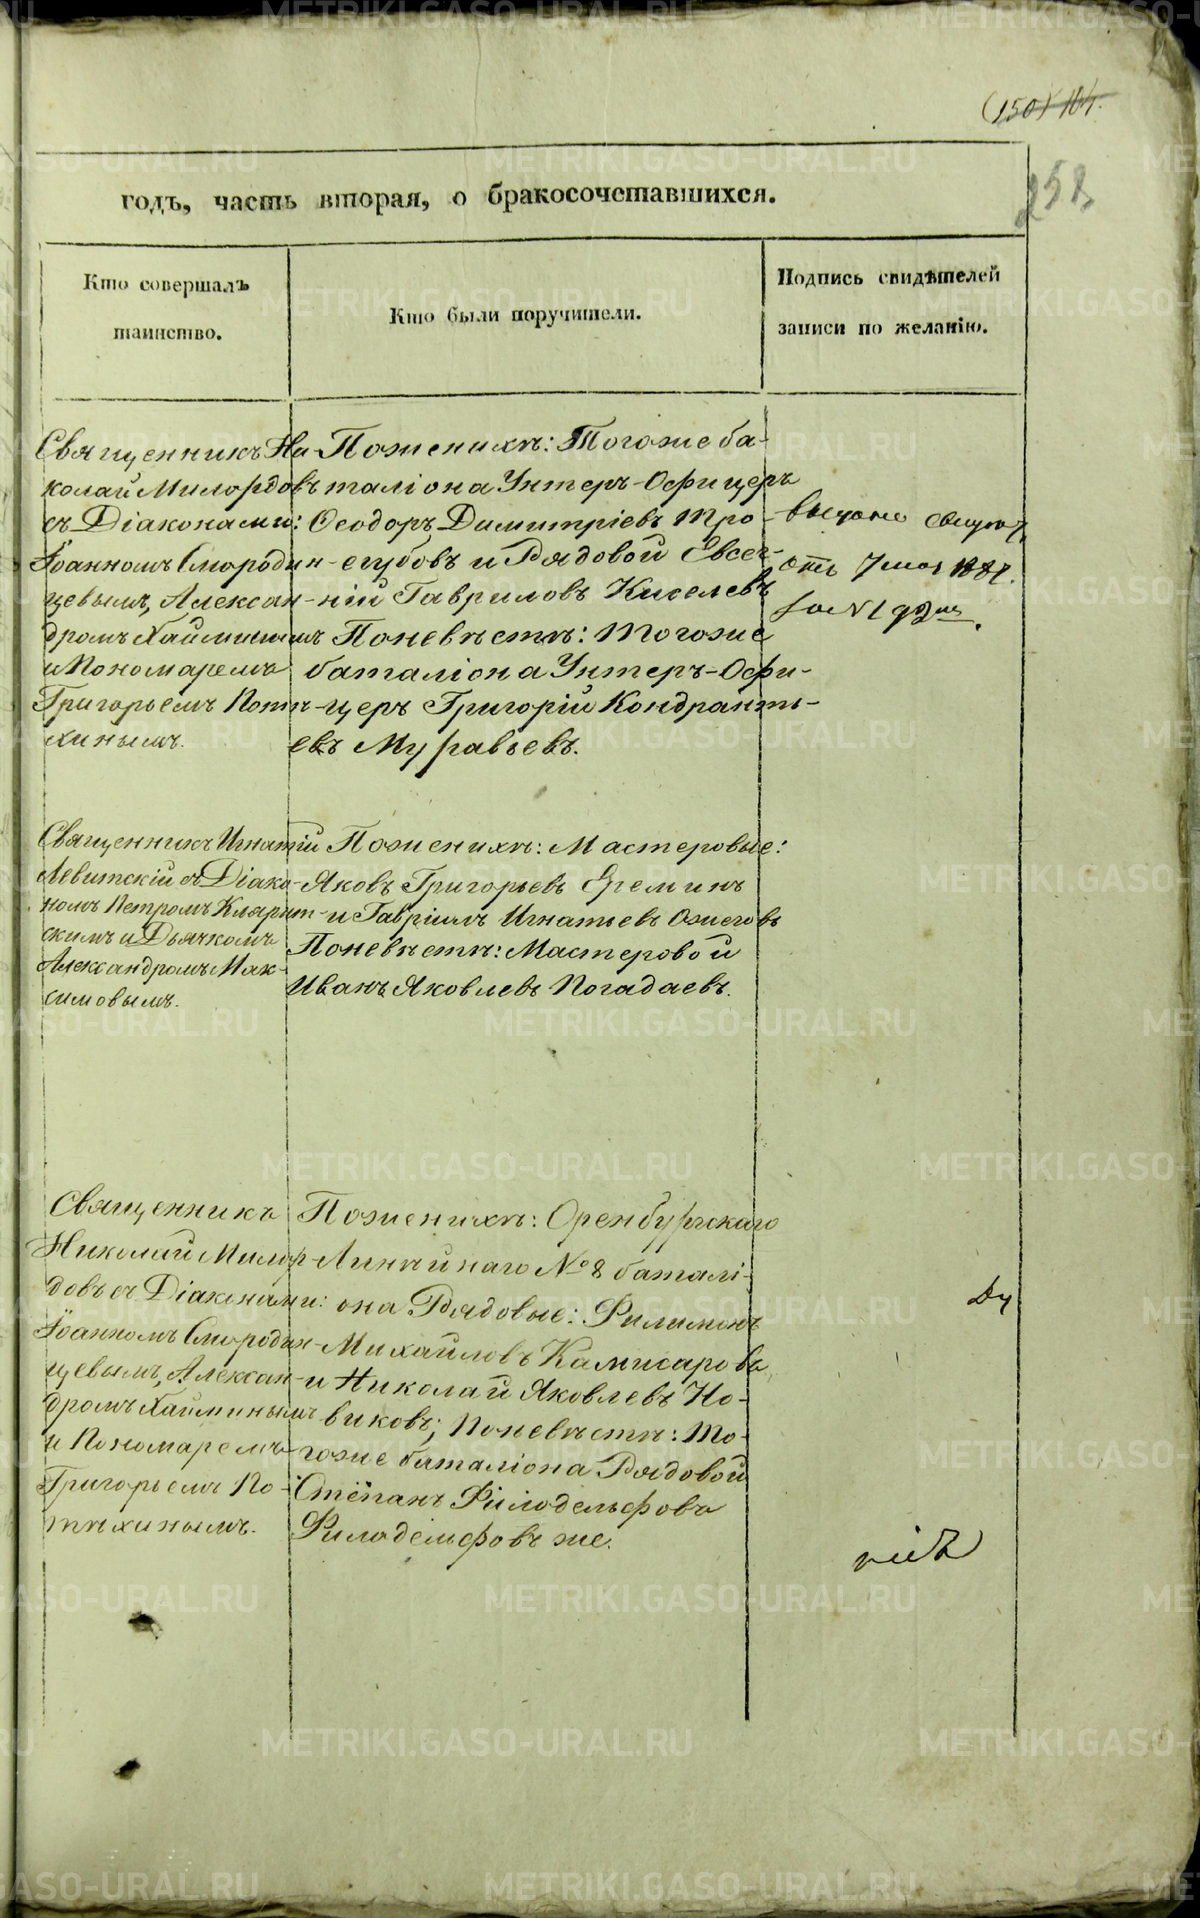 (150) 164.
258
годъ, часть вторая, о бракосочетавшихся.
Кто совершалъ
таинство.
Кто были поручители.
Подпись свидѣтелей
записи по желанію.
Священникъ Ни-
колай Милордовъ
съ Діаконами:
Іоанномъ Смородин-
цевымъ, Алексан-
дромъ Хайминымъ
и Пономаремъ
Григорьемъ Потѣ-
хинымъ.
По женихѣ: Того же ба-
таліона Унтеръ-Офицеръ
Ѳеодоръ Димитріевъ Тро-
егубовъ и Рядовой Евсег-
ній Гавриловъ Киселевъ
По невѣстѣ: Того же
баталіона Унтеръ-Офи-
церъ Григорій Кондрать-
евъ Муравьевъ.
отъ 7 мая 1887.
за № 192
Священникъ Игнатій
Левитскій съ Діако-
номъ Петромъ Кляри-
скимъ и Дьячкомъ
Александромъ Мак-
симовымъ.
По женихѣ: Мастеровые:
Яковъ Григорьевъ Ереминъ
и Гавріилъ Игнатьевъ Ожеговъ
По невѣстѣ: Мастеровой
Иванъ Яковлевъ Погадаевъ.
Священникъ
Николай Милор-
довъ съ Діаконами:
Іоанномъ Смородин-
цевымъ, Алексан-
дромъ Хайминымъ
и Пономаремъ
Григорьемъ По-
тѣхинымъ.
По женихѣ: Оренбургскаго
Линѣйнаго № 8 баталі-
она Рядовые: Филимонъ
Михайловъ Камисаровъ
и Николай Яковлевъ Но-
виковъ; По невѣстѣ: То-
гоже баталіона Рядовой
Степанъ Филодельфовъ
Филадельфовъ же.
Ду
METRIKI.GASO-URAL.RU